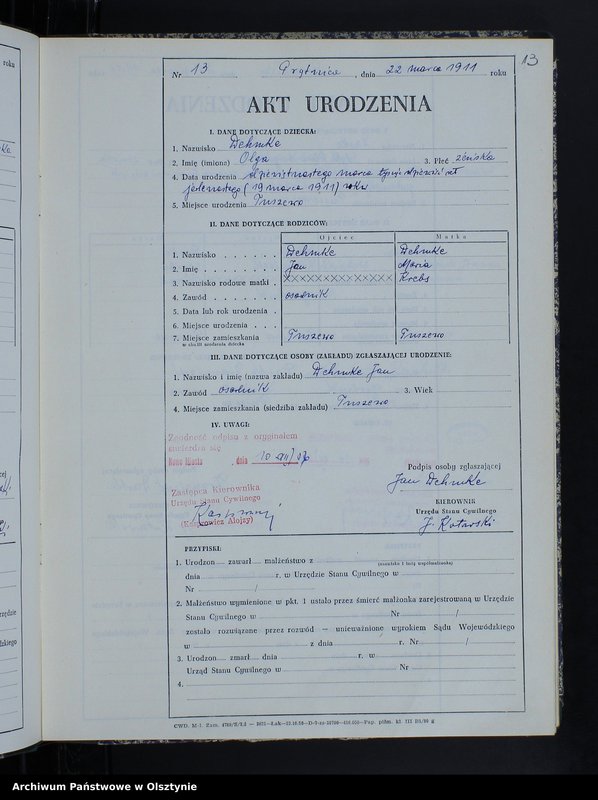 13
Nr 13 , dnia 22 marca 1911 roku
AKT URODZENIA
I. DANE DOTYCZĄCE DZIECKA:
1. Nazwisko Dehmke
2. Imię (imiona) Olga 3. Płeć żeńska
4. Data urodzenia marca tysiąc
jedenastego (19 marca 1911) roku
5. Miejsce urodzenia Tuszewo
II. DANE DOTYCZĄCE RODZICÓW:
Ojciec Matka
1. Nazwisko Dehmke Dehmke
2. Imię Jan Maria
3. Nazwisko rodowe matki XXXXXXXXXXXXX Krebs
4. Zawód osadnik
5. Data lub rok urodzenia
6. Miejsce urodzenia
7. Miejsce zamieszkania Tuszewo Tuszewo
w chwili urodzenia dziecka
III. DANE DOTYCZĄCE OSOBY (ZAKŁADU) ZGŁASZAJĄCEJ URODZENIE:
1. Nazwisko i imię (nazwa zakładu) Dehmke Jan
2. Zawód osadnik 3. Wiek
4. Miejsce zamieszkania (siedziba zakładu) Tuszewo
IV. UWAGI:
Zgodność odpisu z oryginałem
stwierdza się
Nowe Miasto , dnia 10
Zastępca Kierownika
Urzędu Stanu Cywilnego
(Kasprowicz Alojzy)
Podpis osoby zgłaszającej
Jan Dehmke
KIEROWNIK
Urzędu Stanu Cywilnego
J. Kotarski
PRZYPISKI:
1. Urodzon zawarł małżeństwo z
(nazwisko i imię współmałżonka)
dnia r. w Urzędzie Stanu Cywilnego w
Nr /
2. Małżeństwo wymienione w pkt. 1 ustało przez śmierć małżonka zarejestrowaną w Urzędzie
Stanu Cywilnego w Nr /
zostało rozwiązane przez rozwód — unieważnione wyrokiem Sądu Wojewódzkiego
w z dnia r. Nr /
3. Urodzon zmarł dnia r. w
Urząd Stanu Cywilnego w Nr
4.
Archiwum Państwowe w Olsztynie